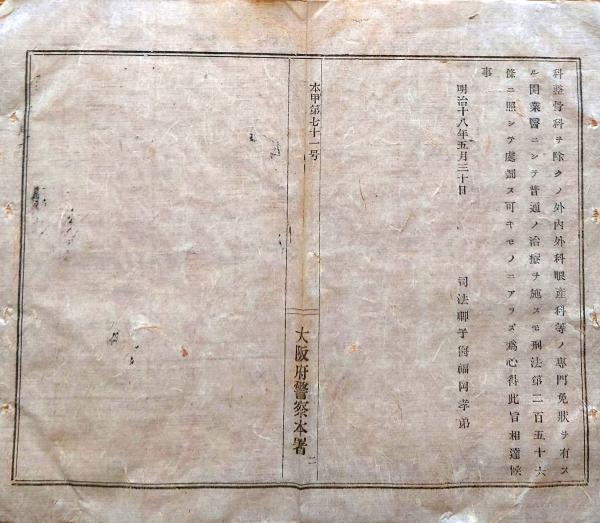 科整骨科ヲ除クノ外內外科眼産科等ノ專門免狀ヲ有ス
ル開業醫ニシテ普通ノ治療ヲ施スモ刑法第二百五十六
條ニ照シテ處斷ス可キモノニアラズ爲心得此旨相達候
事
明治十八年五月三十日
司法卿子爵福岡孝弟
本甲第七十一号
大阪府警察本署
二